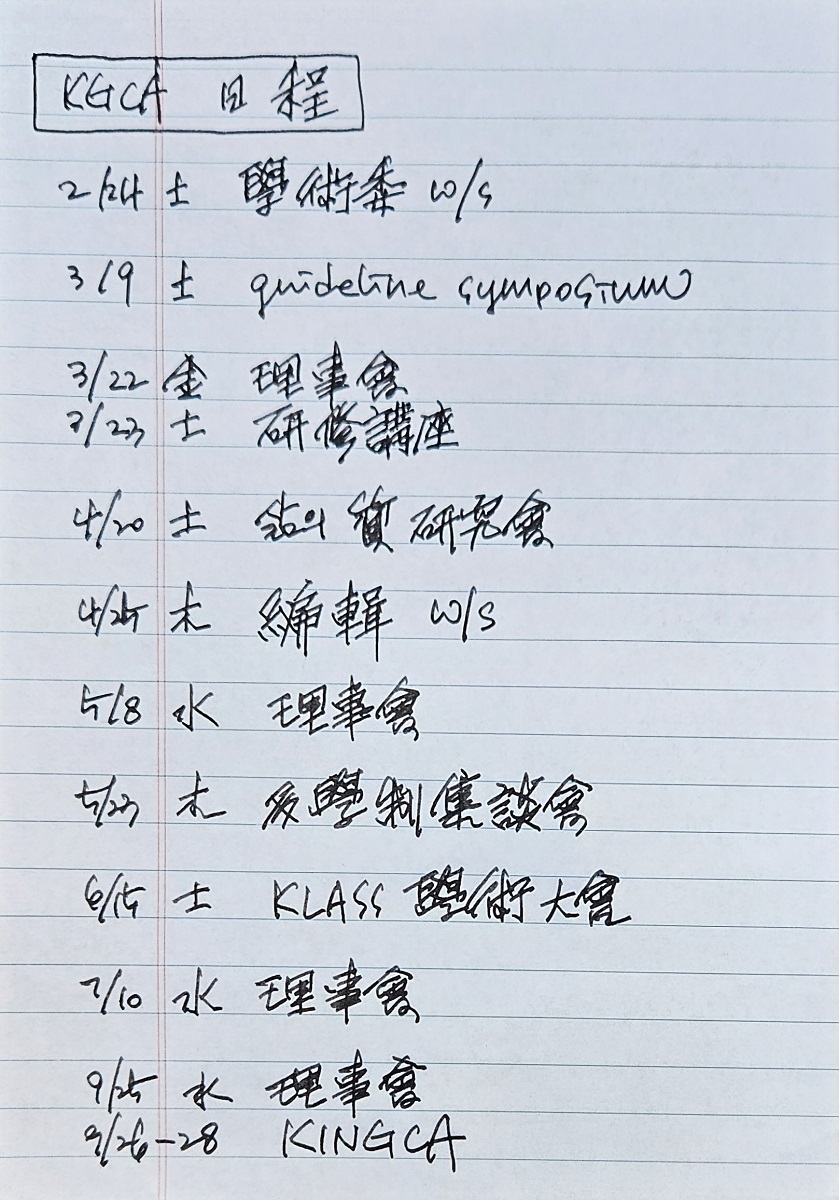 KGCA 日程
2/24 土 學術委 w/s
3/9 土 guideline symposium
3/22 金 理事會
3/23 土 研修講座
4/20 土 삶의 質 硏究會
4/25 木 編輯 w/s
5/8 水 理事會
5/23 木 多學制集談會
6/15 土 KLASS 學術大會
7/10 水 理事會
9/25 水 理事會
9/26-28 KINGCA